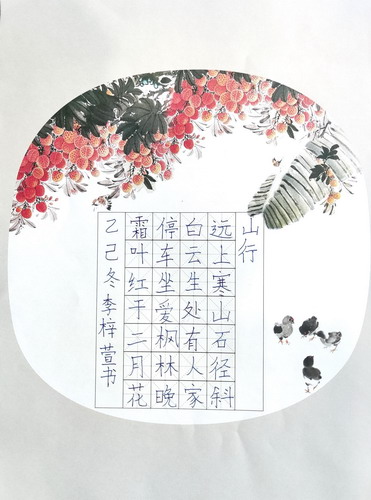 山行
远上寒山石径斜
白云生处有人家
停车坐爱枫林晚
霜叶红于二月花
乙己冬李梓萱书